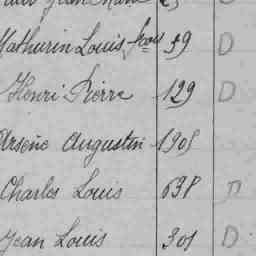 Jean Marie
Mathurin Louis frois 59 D
Henri Pierre 129 D
Arsène Augustin 1905
Charles Louis 638 D
Jean Louis 301 D